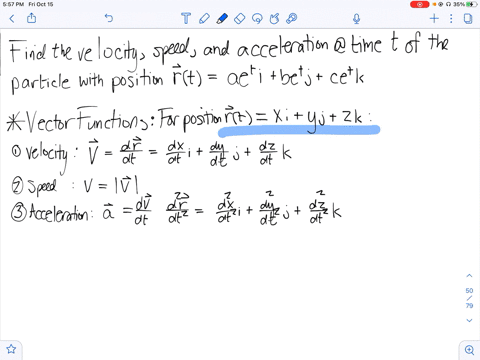 5:57 PM Fri Oct 15
35%
Find the velocity, speed, and acceleration @ time t of the
particle with position r⃗(t) = ae^t i + be^t j + ce^t k
*Vector Functions: For position r⃗(t) = xi + yj + zk :
① Velocity: V⃗ = dr⃗/dt = dx/dt i + dy/dt j + dz/dt k
② Speed : V = |V⃗|
③ Acceleration: a⃗ = dv⃗/dt d²r⃗/dt² = d²x/dt² i + d²y/dt² j + d²z/dt² k
50
/
79